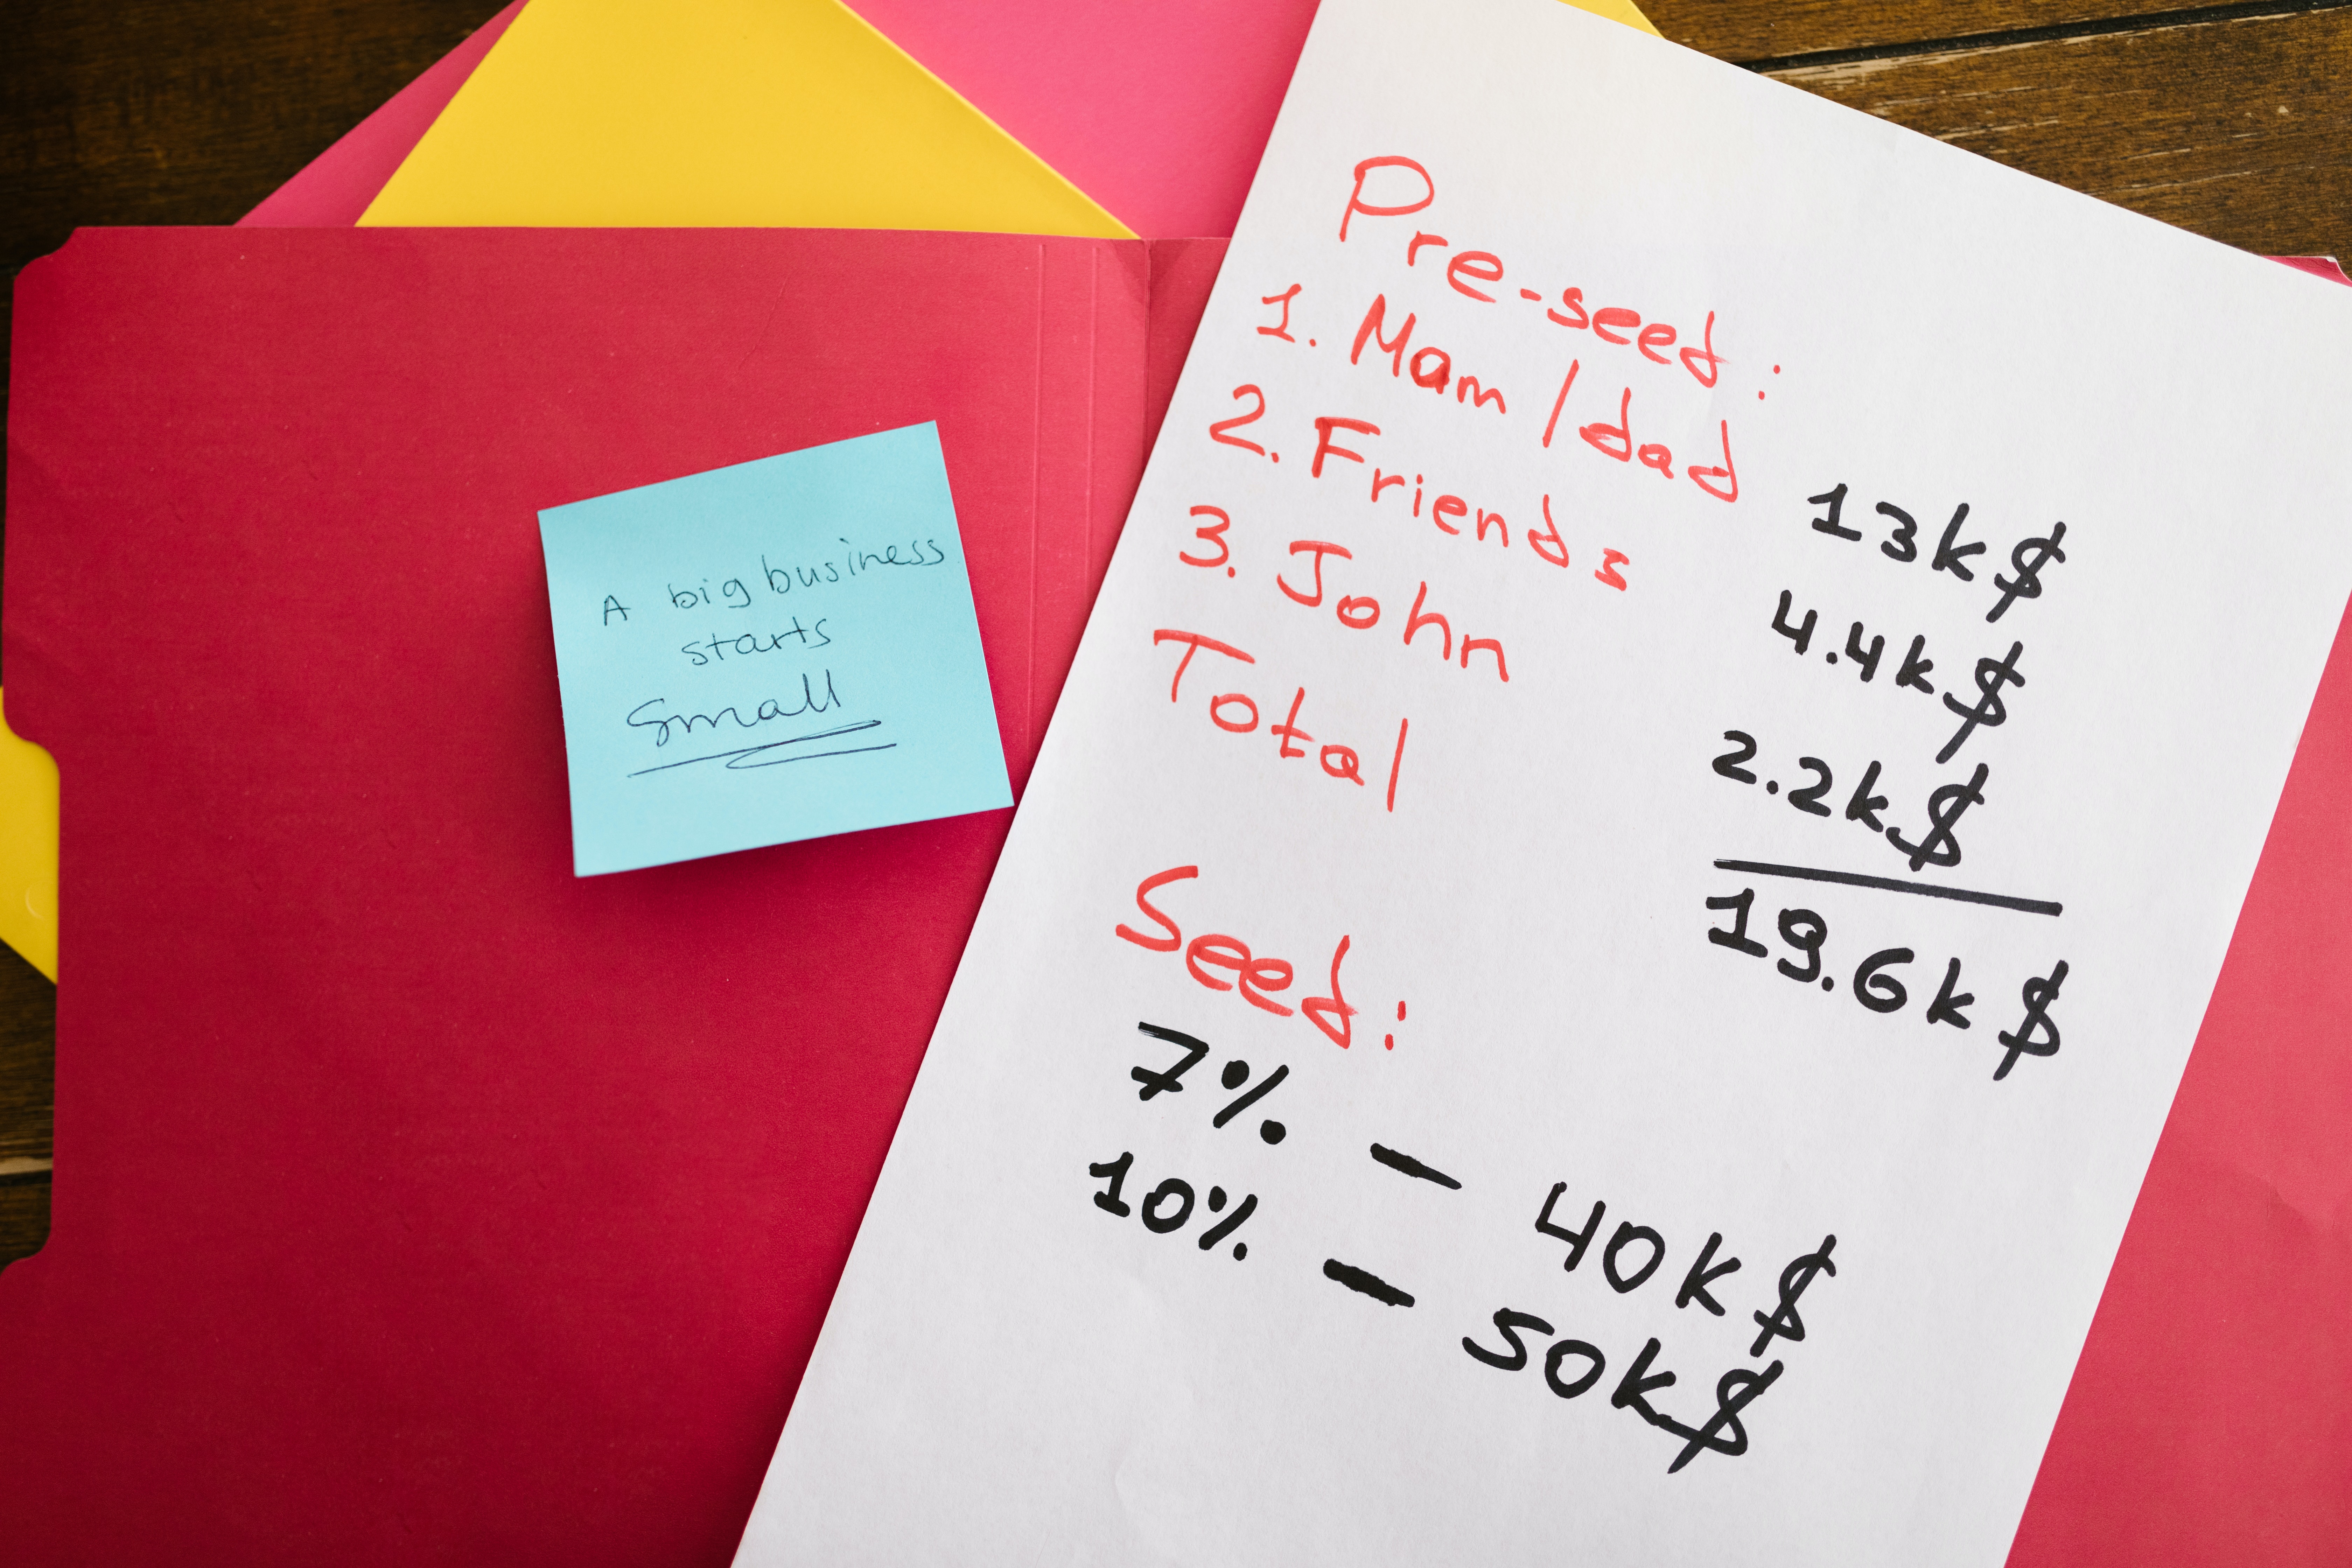 A big business
starts
Small
Pre-seed:
1. Mam/dad 13k$
2. Friends 4.4k$
3. John 2.2k$
Total 19.6k$
Seed:
7% - 40k$
10% - 50k$